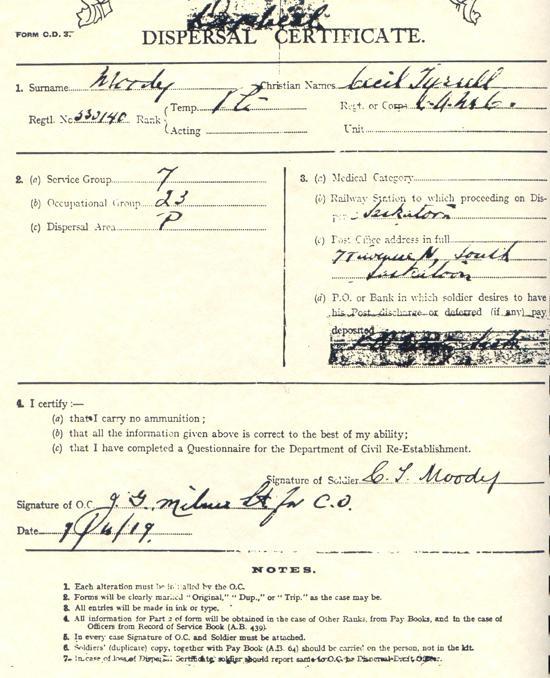 FORM C.D. 3.
DISPERSAL CERTIFICATE.
1. Surname Moody Christian Names Cecil Tyrell
Regtl. No 530140 Rank Temp. Pte Regt. or Corps C.A.M.C.
Acting Unit
2. (a) Service Group 7
(b) Occupational Group 23
(c) Dispersal Area P
3. (a) Medical Category
(b) Railway Station to which proceeding on Dis-
Saskatoon
(c) Post Office address in full
Avenue N, South
Saskatoon
(d) P.O. or Bank in which soldier desires to have
his Post discharge or deferred (if any) pay
deposited
4. I certify :—
(a) that I carry no ammunition ;
(b) that all the information given above is correct to the best of my ability;
(c) that I have completed a Questionnaire for the Department of Civil Re-Establishment.
Signature of Soldier C. T. Moody
Signature of O.C. J. G. Milne Lt for C.O.
Date /4/19.
NOTES.
1. Each alteration must be initialled by the O.C.
2. Forms will be clearly marked "Original," "Dup.," or "Trip." as the case may be.
3. All entries will be made in ink or type.
4. All information for Part 2 of form will be obtained in the case of Other Ranks, from Pay Books, and in the case of
Officers from Record of Service Book (A.B. 439).
5. In every case Signature of O.C. and Soldier must be attached.
6. Soldiers' (duplicate) copy, together with Pay Book (A.B. 64) should be carried on the person, not in the kit.
7. In case of loss of Dispersal Certificate, soldier should report same to O.C. his Dispersal